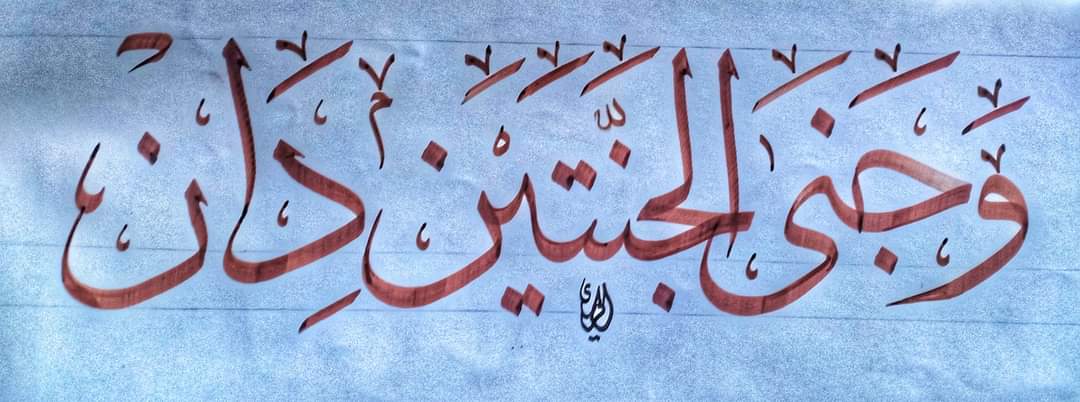 وَجَنَى الْجَنَّتَيْنِ دَانٍ